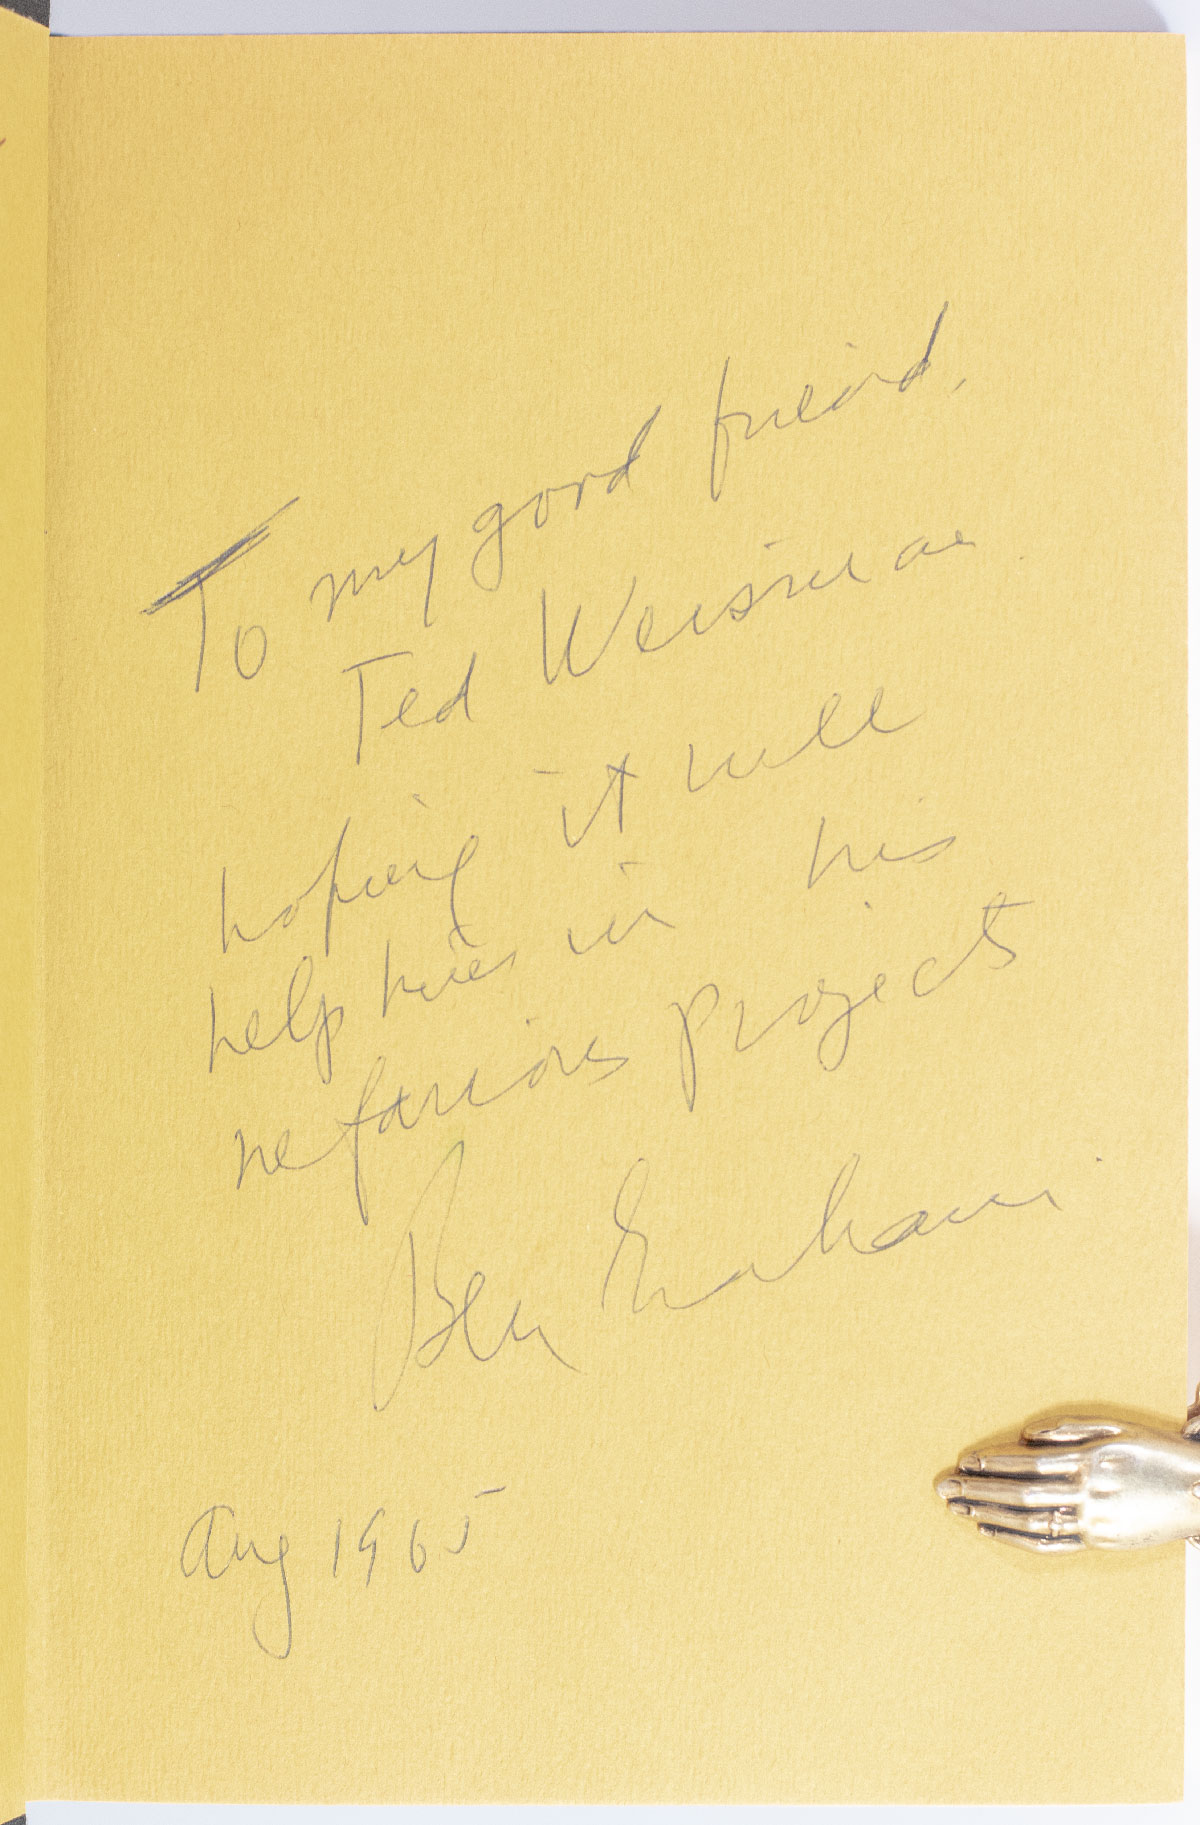 To my good friend,
Ted Weisman
hoping it will
help him in his
nefarious projects
Ben Graham
Aug 1965